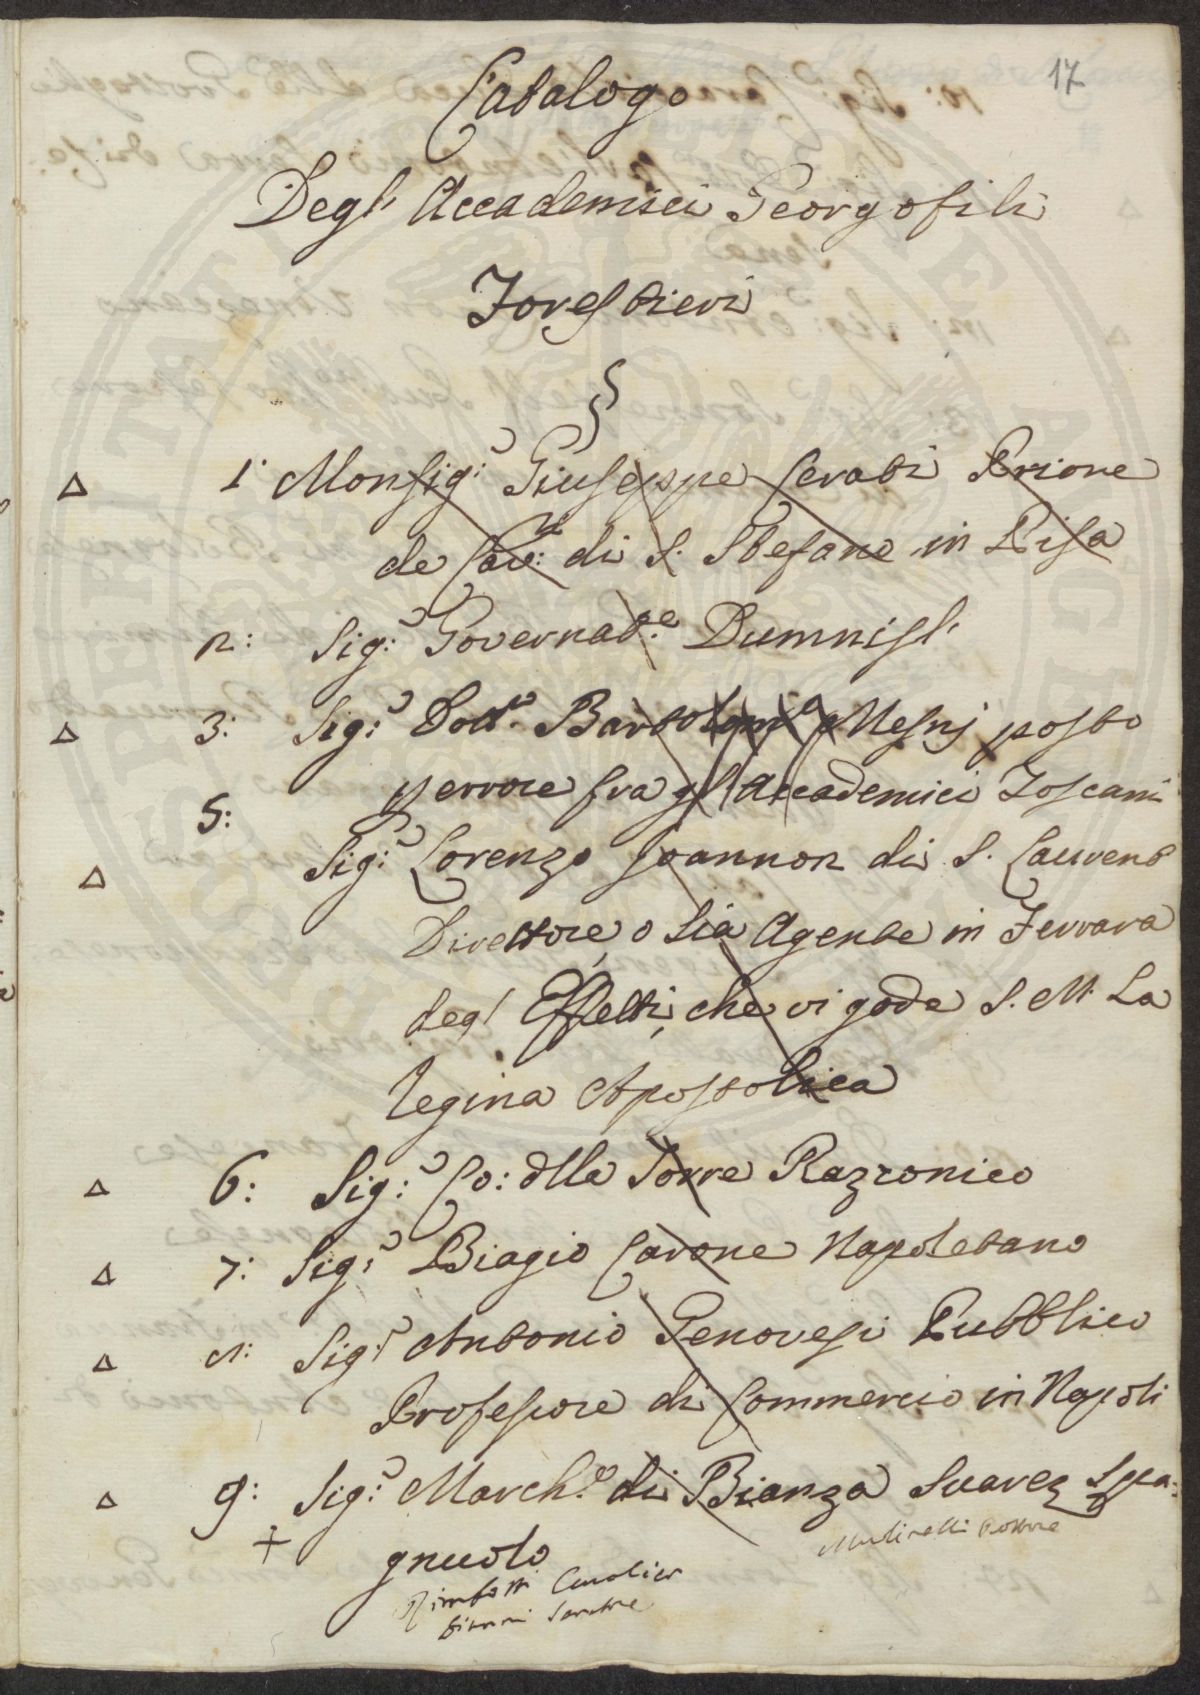 17
Catalogo
Degl' Accademici Georgofili
Forestieri
△ 1: Monsig:r Giuseppe Cerati Priore
de Cav:ri di S. Stefano in Pisa
2: Sig:r Governat:re Dumnisl'
△ 3: Sig:r Dott:re Bartolom:o Mesnj posto
p errore fra gl' Accademici Toscani
5:
△ Sig:r Lorenzo Joannon di S. Laurent
Direttore, o sia Agente in Ferrara
degl' Effetti, che vi gode S. M. La
Regina Apostolica
△ 6: Sig:r Co: dlla Torre Razzonico
△ 7: Sig:r Biagio Carone Napoletano
△ 8: Sig:r Antonio Genovesi Pubblico
Professore di Commercio in Napoli
△ 9: Sig:r March:e di Bianza Suarez Spa:
gnuolo
Rimbotti Cavalier